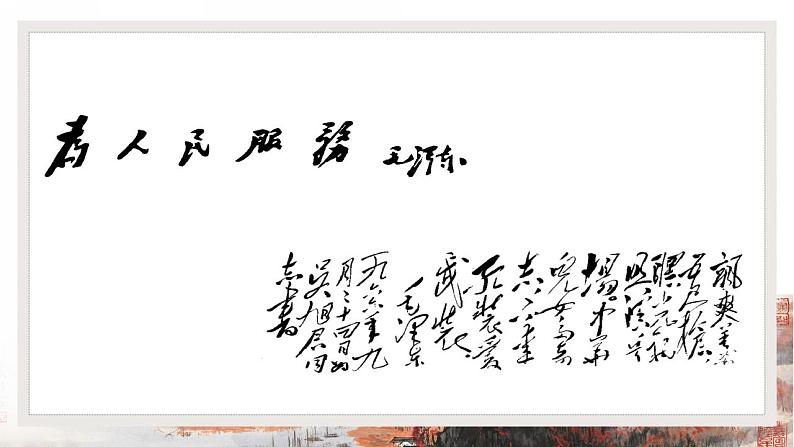 為人民服務 毛泽东
颯爽英姿
五尺槍
曙光初
照演兵
場中華
兒女多奇
志不爱
红裝爱
武裝
毛澤東
年九
月二十四日
吴旭君同
志書